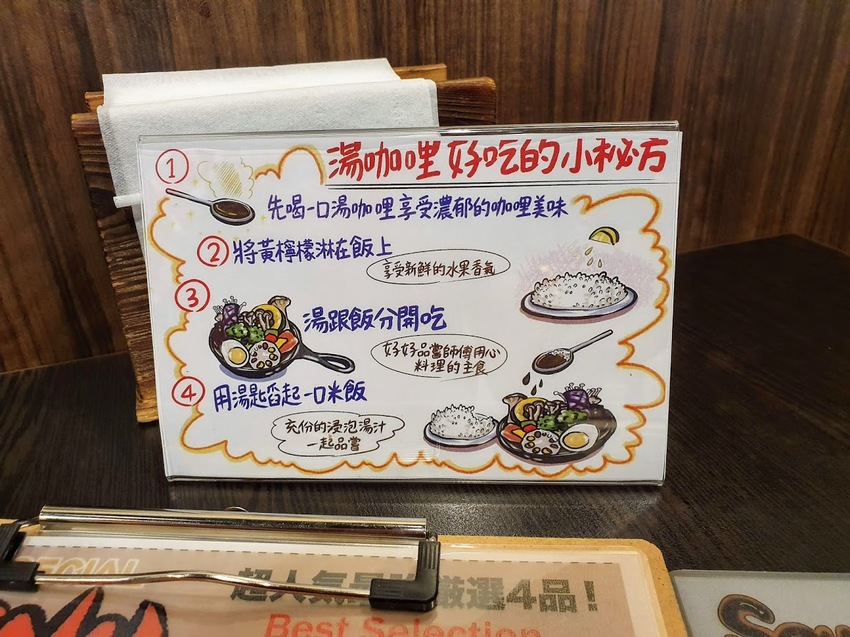 湯咖哩好吃的小秘方
① 先喝一口湯咖哩享受濃郁的咖哩美味
② 將黃檸檬淋在飯上
享受新鮮的水果香氣
③ 湯跟飯分開吃
好好品嘗師傅用心
料理的主食
④ 用湯匙舀起一口米飯
充份的浸泡湯汁
一起品嘗
SPECIAL
超人気
厳選4品！
Best Selection